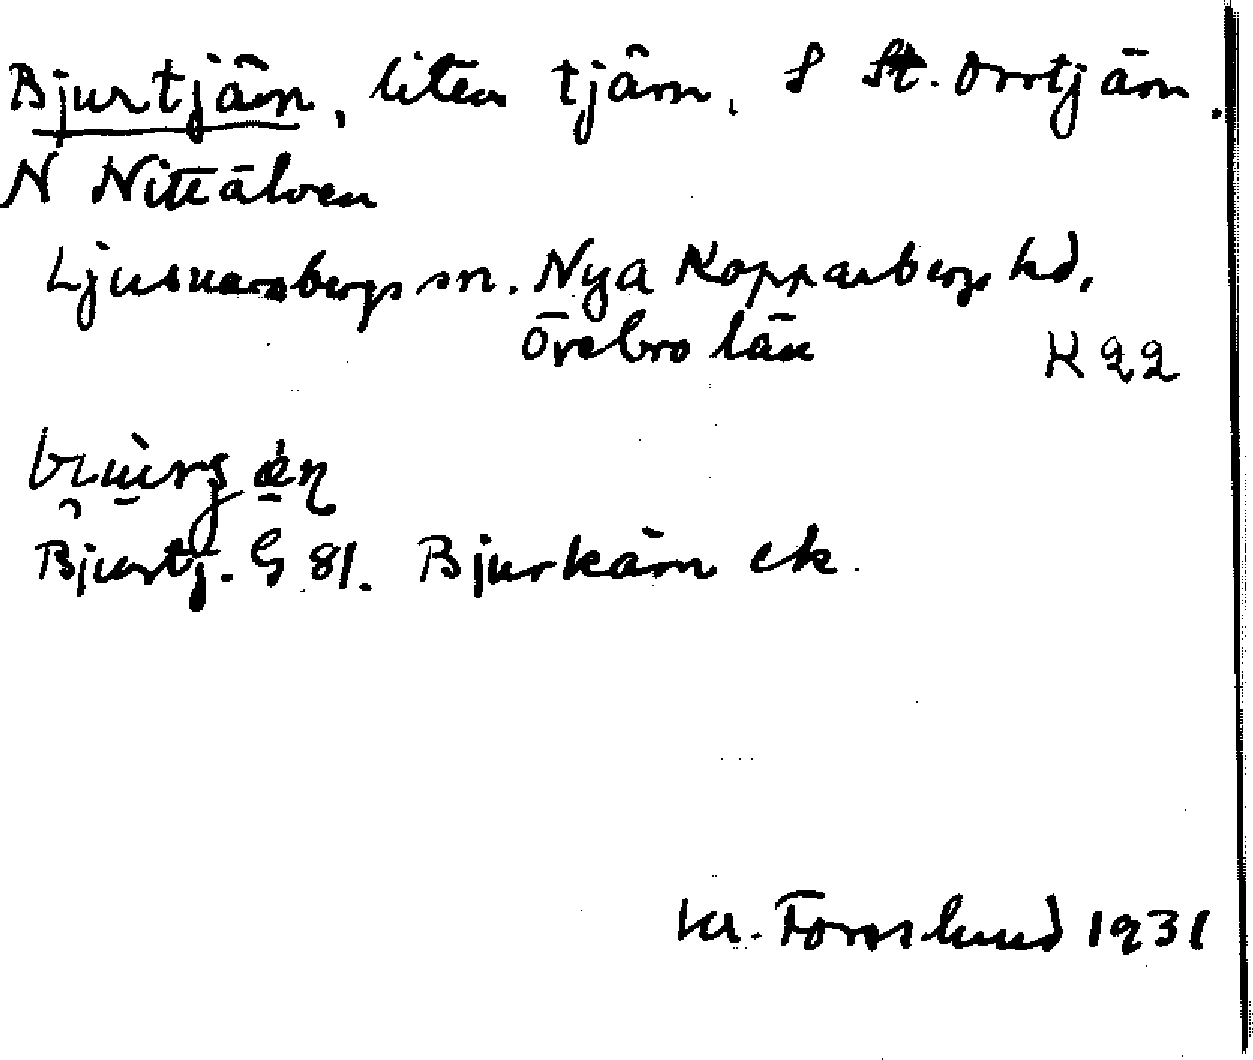 Bjurtjärn, liten tjärn, S St. Orrtjärn.
N Nittälven
Ljusnarsbergs sn. Nya Kopparbergs hd,
Örebro län K 22
Bjurtj. G 81. Bjurkärn ek.
Kr. Forslund 1931